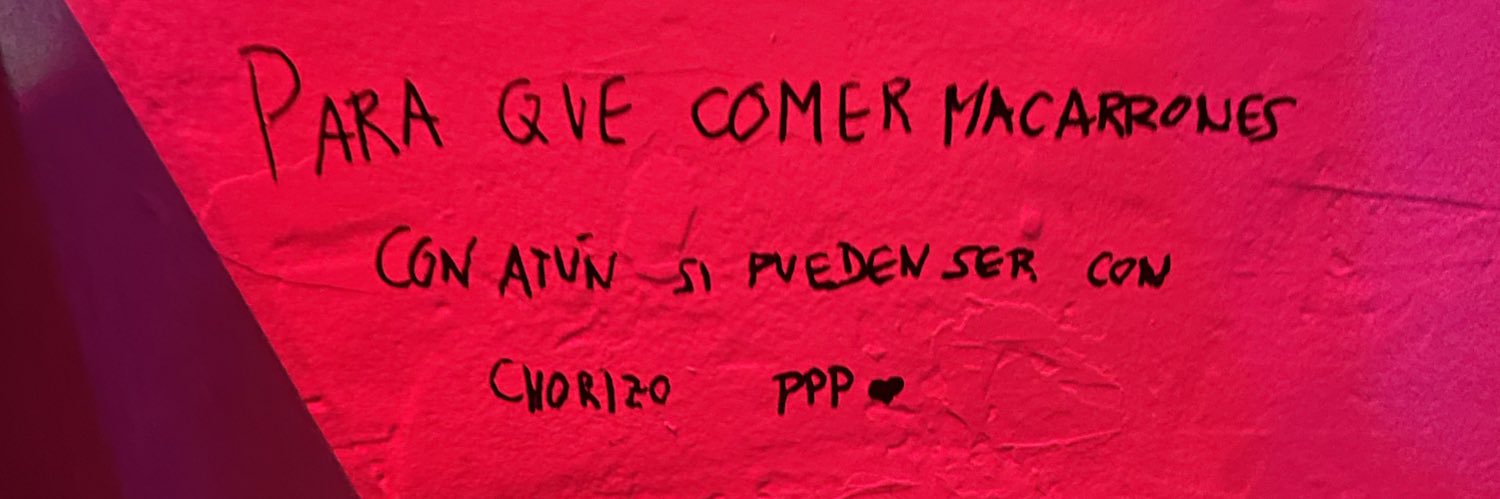 PARA QUE COMER MACARRONES
CON ATÚN SI PUEDEN SER CON
CHORIZO PPP ♥